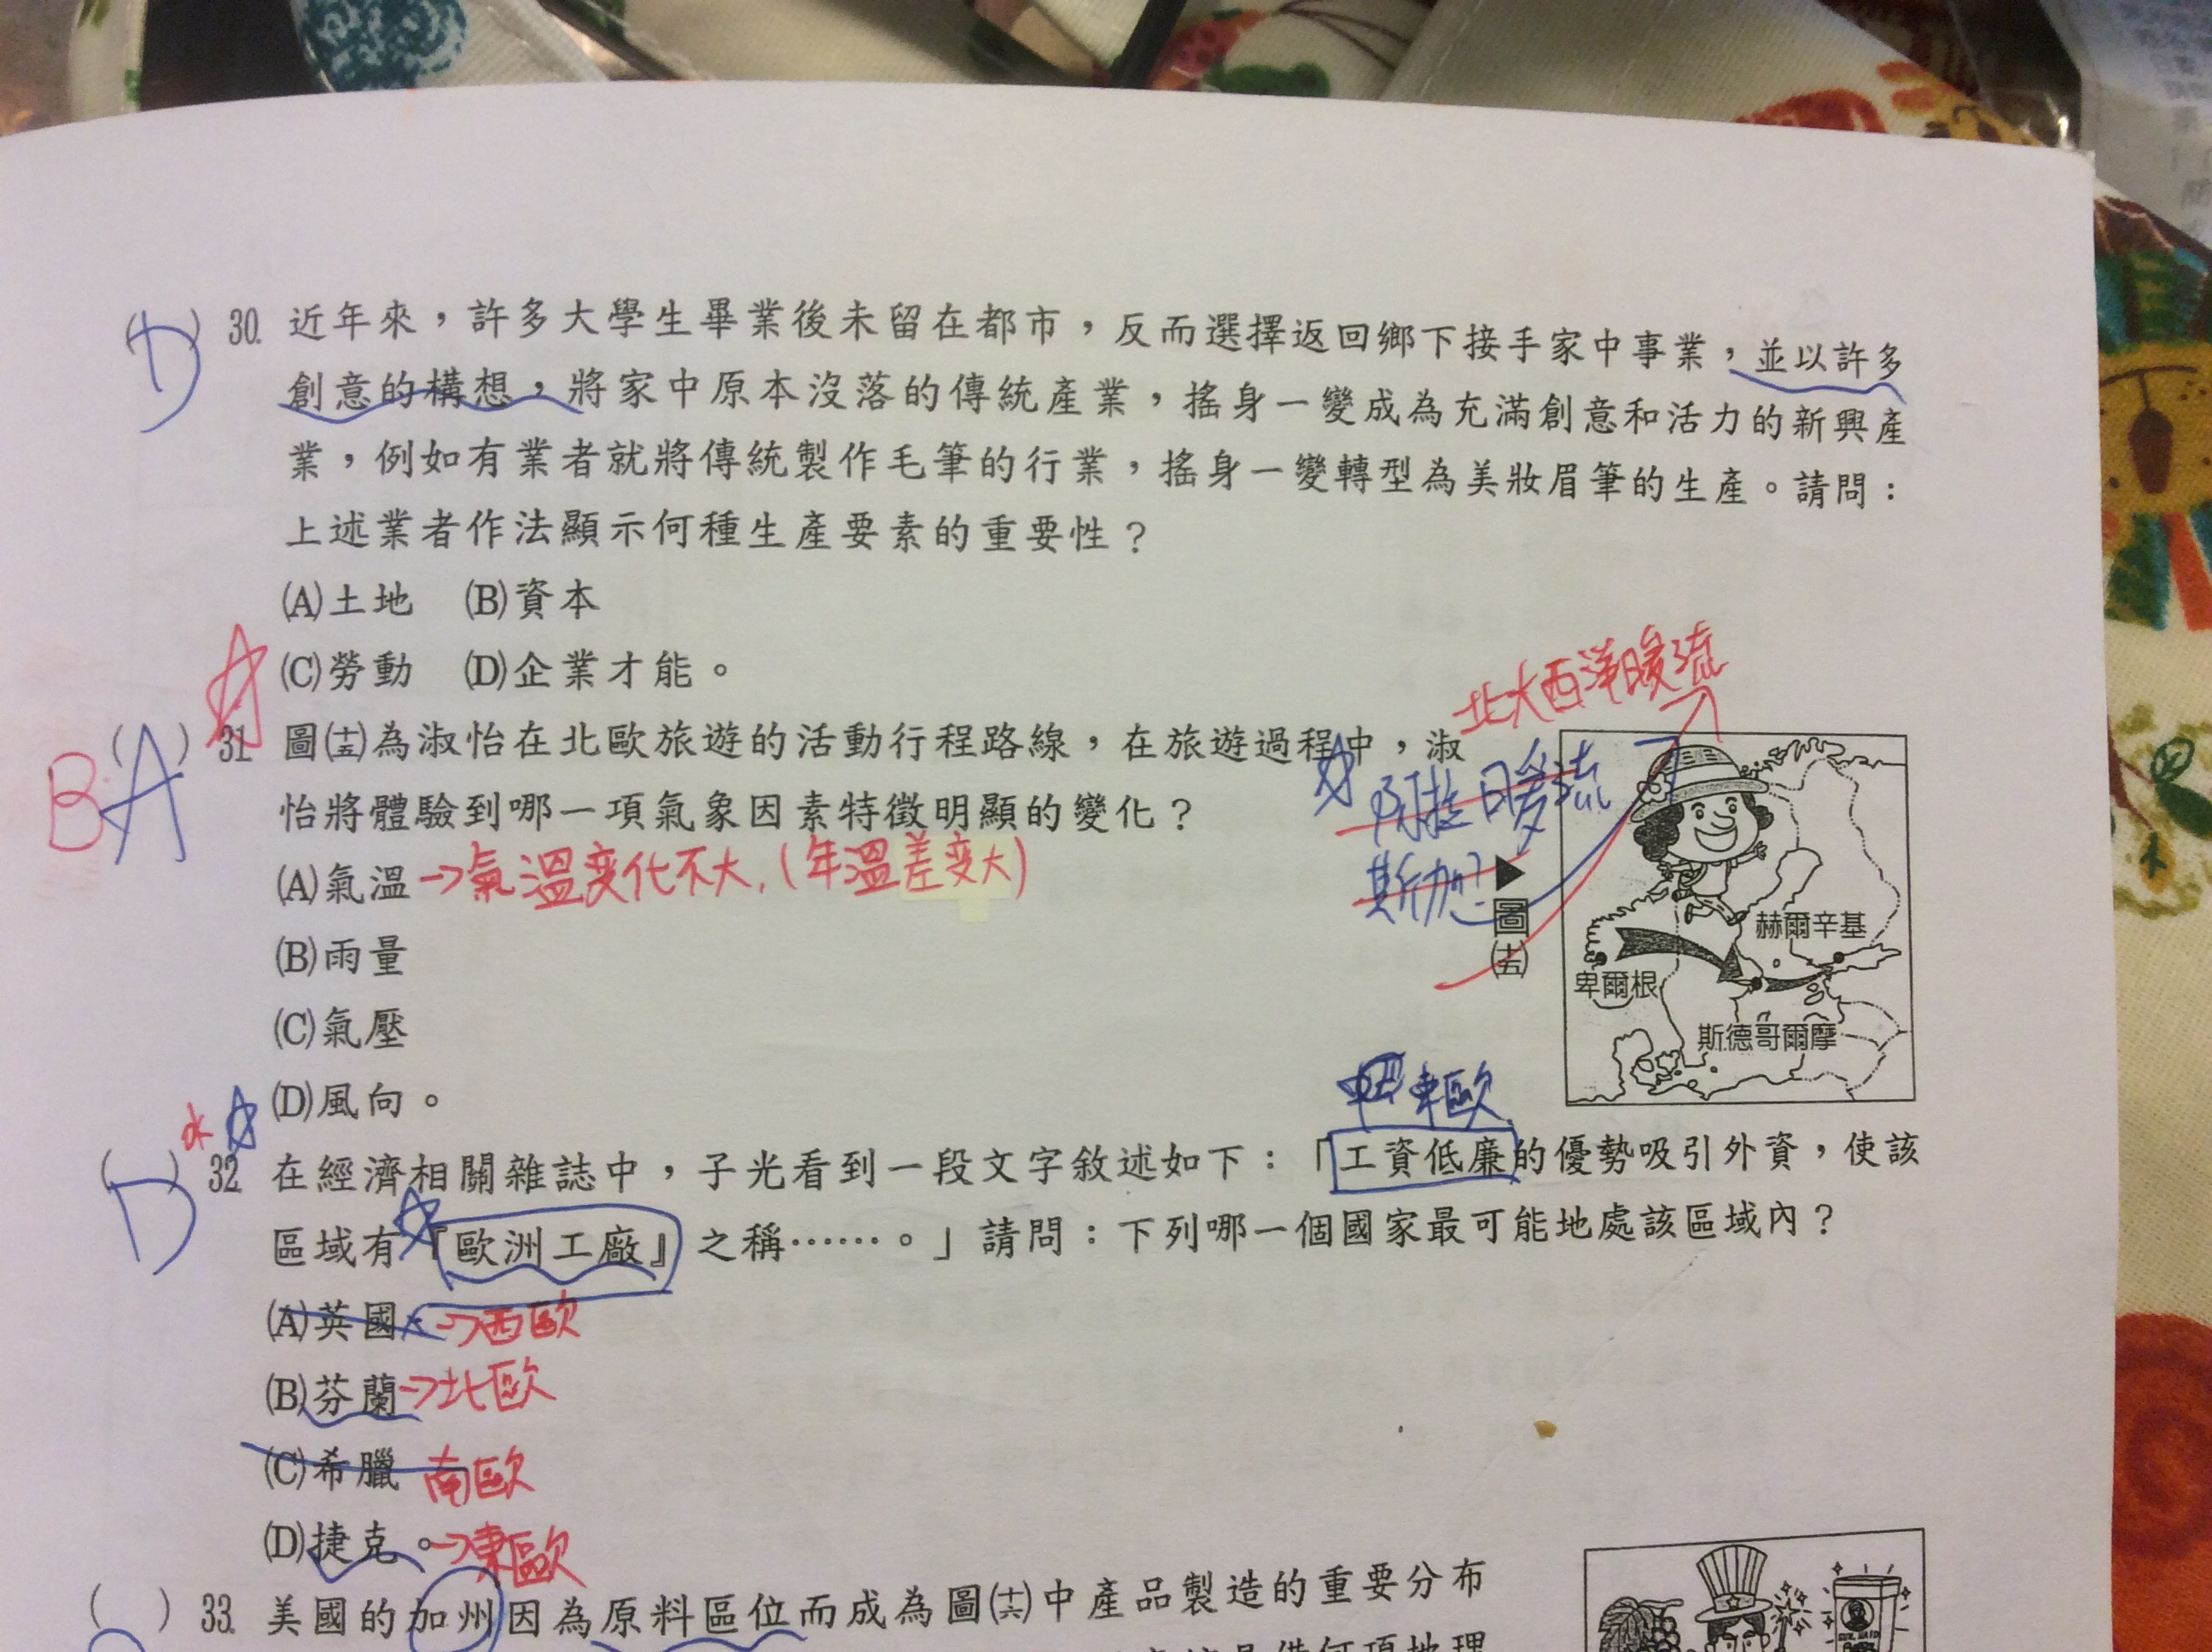 (D) 30. 近年來，許多大學生畢業後未留在都市，反而選擇返回鄉下接手家中事業，並以許多
創意的構想，將家中原本沒落的傳統產業，搖身一變成為充滿創意和活力的新興產
業，例如有業者就將傳統製作毛筆的行業，搖身一變轉型為美妝眉筆的生產。請問：
上述業者作法顯示何種生產要素的重要性？
(A)土地 (B)資本
(C)勞動 (D)企業才能。
北大西洋暖流
B (A) 31. 圖(十五)為淑怡在北歐旅遊的活動行程路線，在旅遊過程中，淑
怡將體驗到哪一項氣象因素特徵明顯的變化？
阿拉斯加暖流
(A)氣溫→氣溫变化不大，(年溫差变大)
(B)雨量
(C)氣壓
(D)風向。
▶圖(十五)
赫爾辛基
卑爾根
斯德哥爾摩
東歐
(D) 32. 在經濟相關雜誌中，子光看到一段文字敘述如下：「工資低廉的優勢吸引外資，使該
區域有『歐洲工廠』之稱……。」請問：下列哪一個國家最可能地處該區域內？
(A)英國→西歐
(B)芬蘭→北歐
(C)希臘 南歐
(D)捷克。→東歐
( ) 33. 美國的加州因為原料區位而成為圖(十六)中產品製造的重要分布